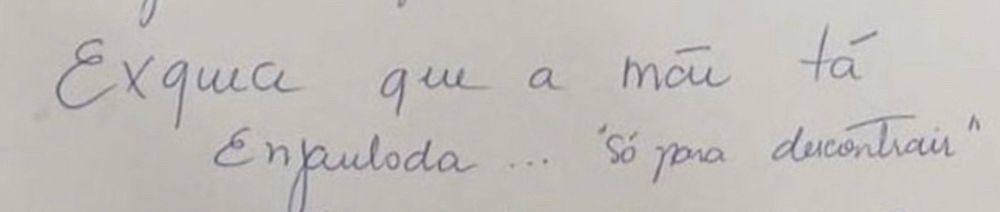 Exqueça que a mãe tá
Enjaulada ... "só para descontrair"